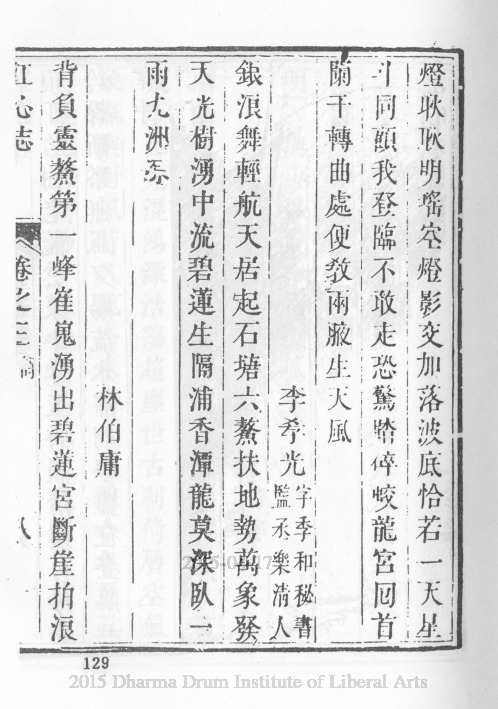 燈耿耿明瑤空燈影交加落波底恰若一天星
斗同頭我登臨不敢走恐驚踏碎蛟龍宮囘首
闌干轉曲處便教兩腋生天風
李孝光 字季和秘書
監丞樂清人
銀浪舞輕航天居起石墻六鰲扶地勢萬象發
天光樹湧中流碧蓮生隔浦香潭龍莫深臥一
雨九洲
林伯庸
背負靈鰲第一峰崔嵬湧出碧蓮宮斷崖拍浪
江心志 卷之三 八
129
2015 Dharma Drum Institute of Liberal Arts